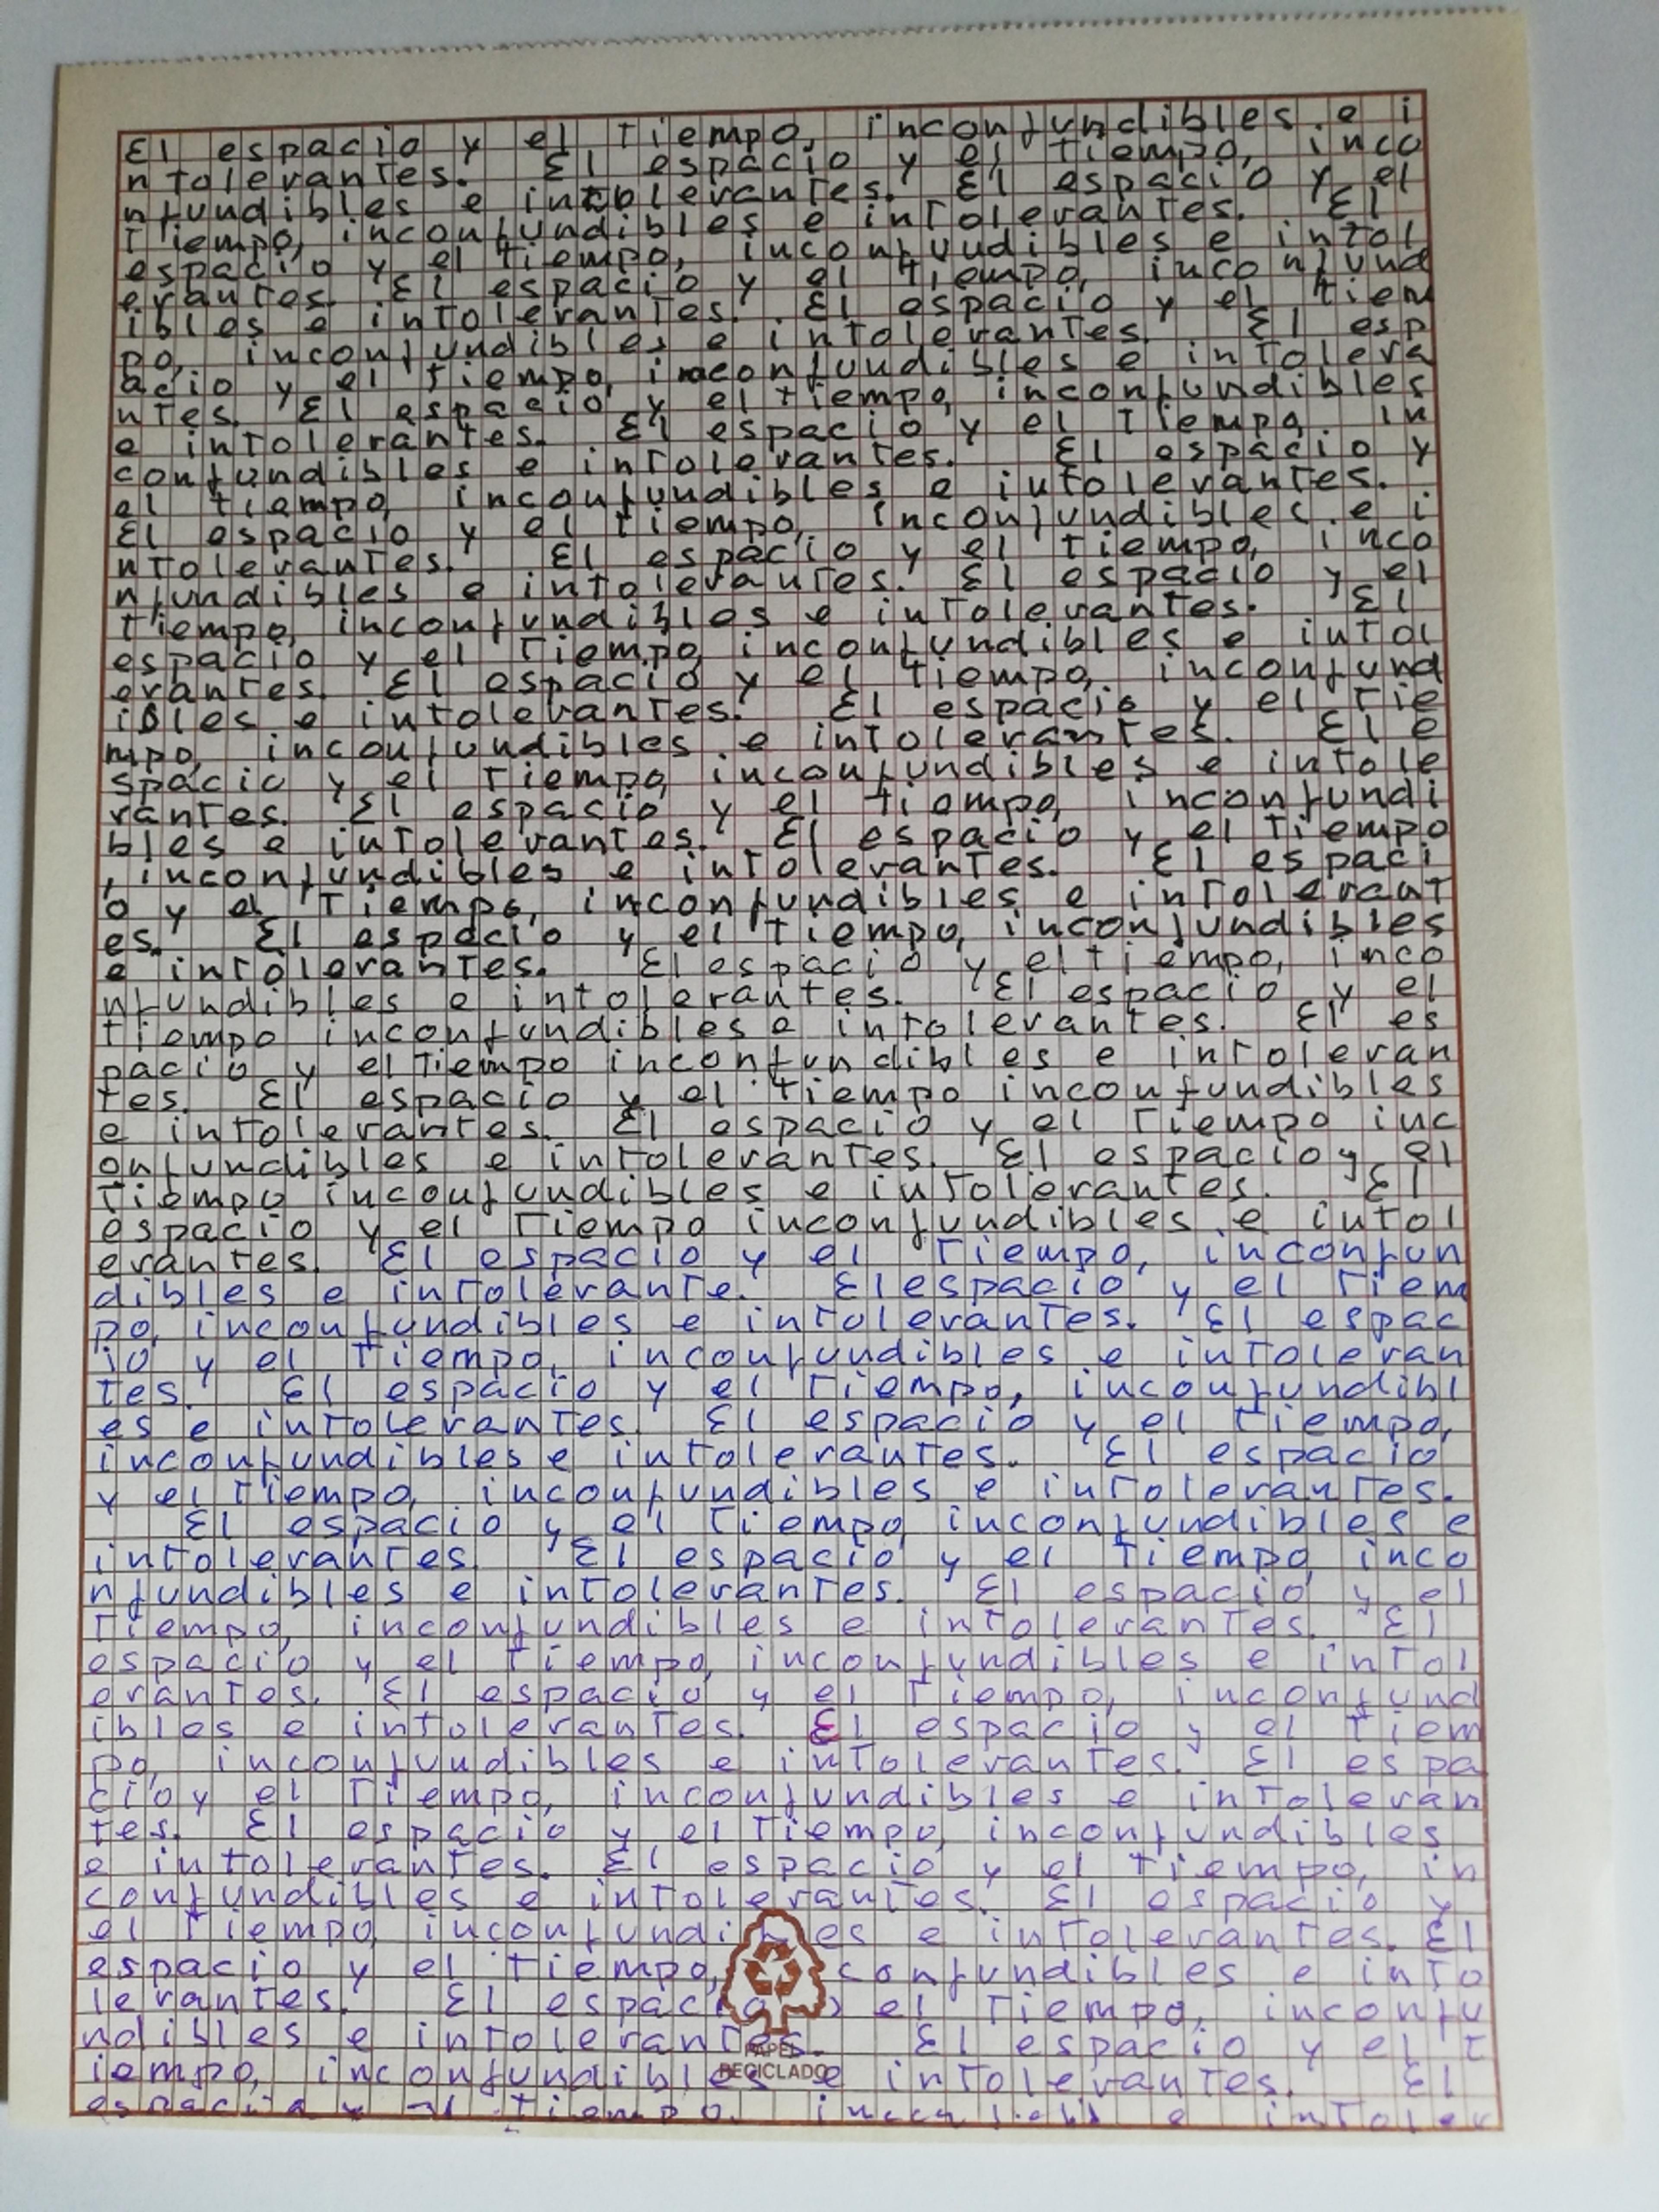 El espacio y el tiempo, inconfundibles e i
ntolerantes. El espacio y el tiempo, inco
nfundibles e intolerantes. El espacio y el
tiempo, inconfundibles e intolerantes. El
espacio y el tiempo, inconfuudibles e intol
erantes. El espacio y el tiempo, inconfund
ibles e intolerantes. El espacio y el tiem
po, inconfundibles e intolerantes. El esp
acio y el tiempo, inconfundibles e intolera
ntes. El espacio y el tiempo, inconfundibles
e intolerantes. El espacio y el tiempo, in
confundibles e intolerantes. El espacio y
el tiempo, inconfundibles e intolerantes.
El espacio y el tiempo, inconfundibles e i
ntolerantes. El espacio y el tiempo, inco
nfundibles e intolerantes. El espacio y el
tiempo, inconfundibles e intolerantes. El
espacio y el tiempo, inconfundibles e intol
erantes. El espacio y el tiempo, inconfund
ibles e intolerantes. El espacio y el tie
mpo, inconfundibles e intolerantes. El e
spacio y el tiempo, inconfundibles e intole
rantes. El espacio y el tiempo, inconfundi
bles e intolerantes. El espacio y el tiempo
, inconfundibles e intolerantes. El espaci
o y el tiempo, inconfundibles e intolerant
es. El espacio y el tiempo, inconfundibles
e intolerantes. El espacio y el tiempo, inco
nfundibles e intolerantes. El espacio y el
tiempo inconfundibles e intolerantes. El es
pacio y el tiempo inconfundibles e intoleran
tes. El espacio y el tiempo inconfundibles
e intolerantes. El espacio y el tiempo inc
onfundibles e intolerantes. El espacio y el
tiempo inconfundibles e intolerantes. El
espacio y el tiempo inconfundibles e intol
erantes. El espacio y el tiempo, inconfun
dibles e intolerante. El espacio y el tiem
po, inconfundibles e intolerantes. El espac
io y el tiempo, inconfundibles e intoleran
tes. El espacio y el tiempo, inconfundibl
es e intolerantes. El espacio y el tiempo,
inconfundibles e intolerantes. El espacio
y el tiempo, inconfundibles e intolerantes.
El espacio y el tiempo, inconfundibles e
intolerantes. El espacio y el tiempo, inco
nfundibles e intolerantes. El espacio y el
tiempo, inconfundibles e intolerantes. El
espacio y el tiempo, inconfundibles e intol
erantes. El espacio y el tiempo, inconfund
ibles e intolerantes. El espacio y el tiem
po, inconfundibles e intolerantes. El espa
cio y el tiempo, inconfundibles e intoleran
tes. El espacio y el tiempo, inconfundibles
e intolerantes. El espacio y el tiempo, in
confundibles e intolerantes. El espacio y
el tiempo, inconfundibles e intolerantes. El
espacio y el tiempo, confundibles e into
lerantes. El espacio y el tiempo, inconfu
ndibles e intolerantes. El espacio y el t
PAPEL
iempo, inconfundibles e intolerantes. El
RECICLADO
espacio y el tiempo, e intoler